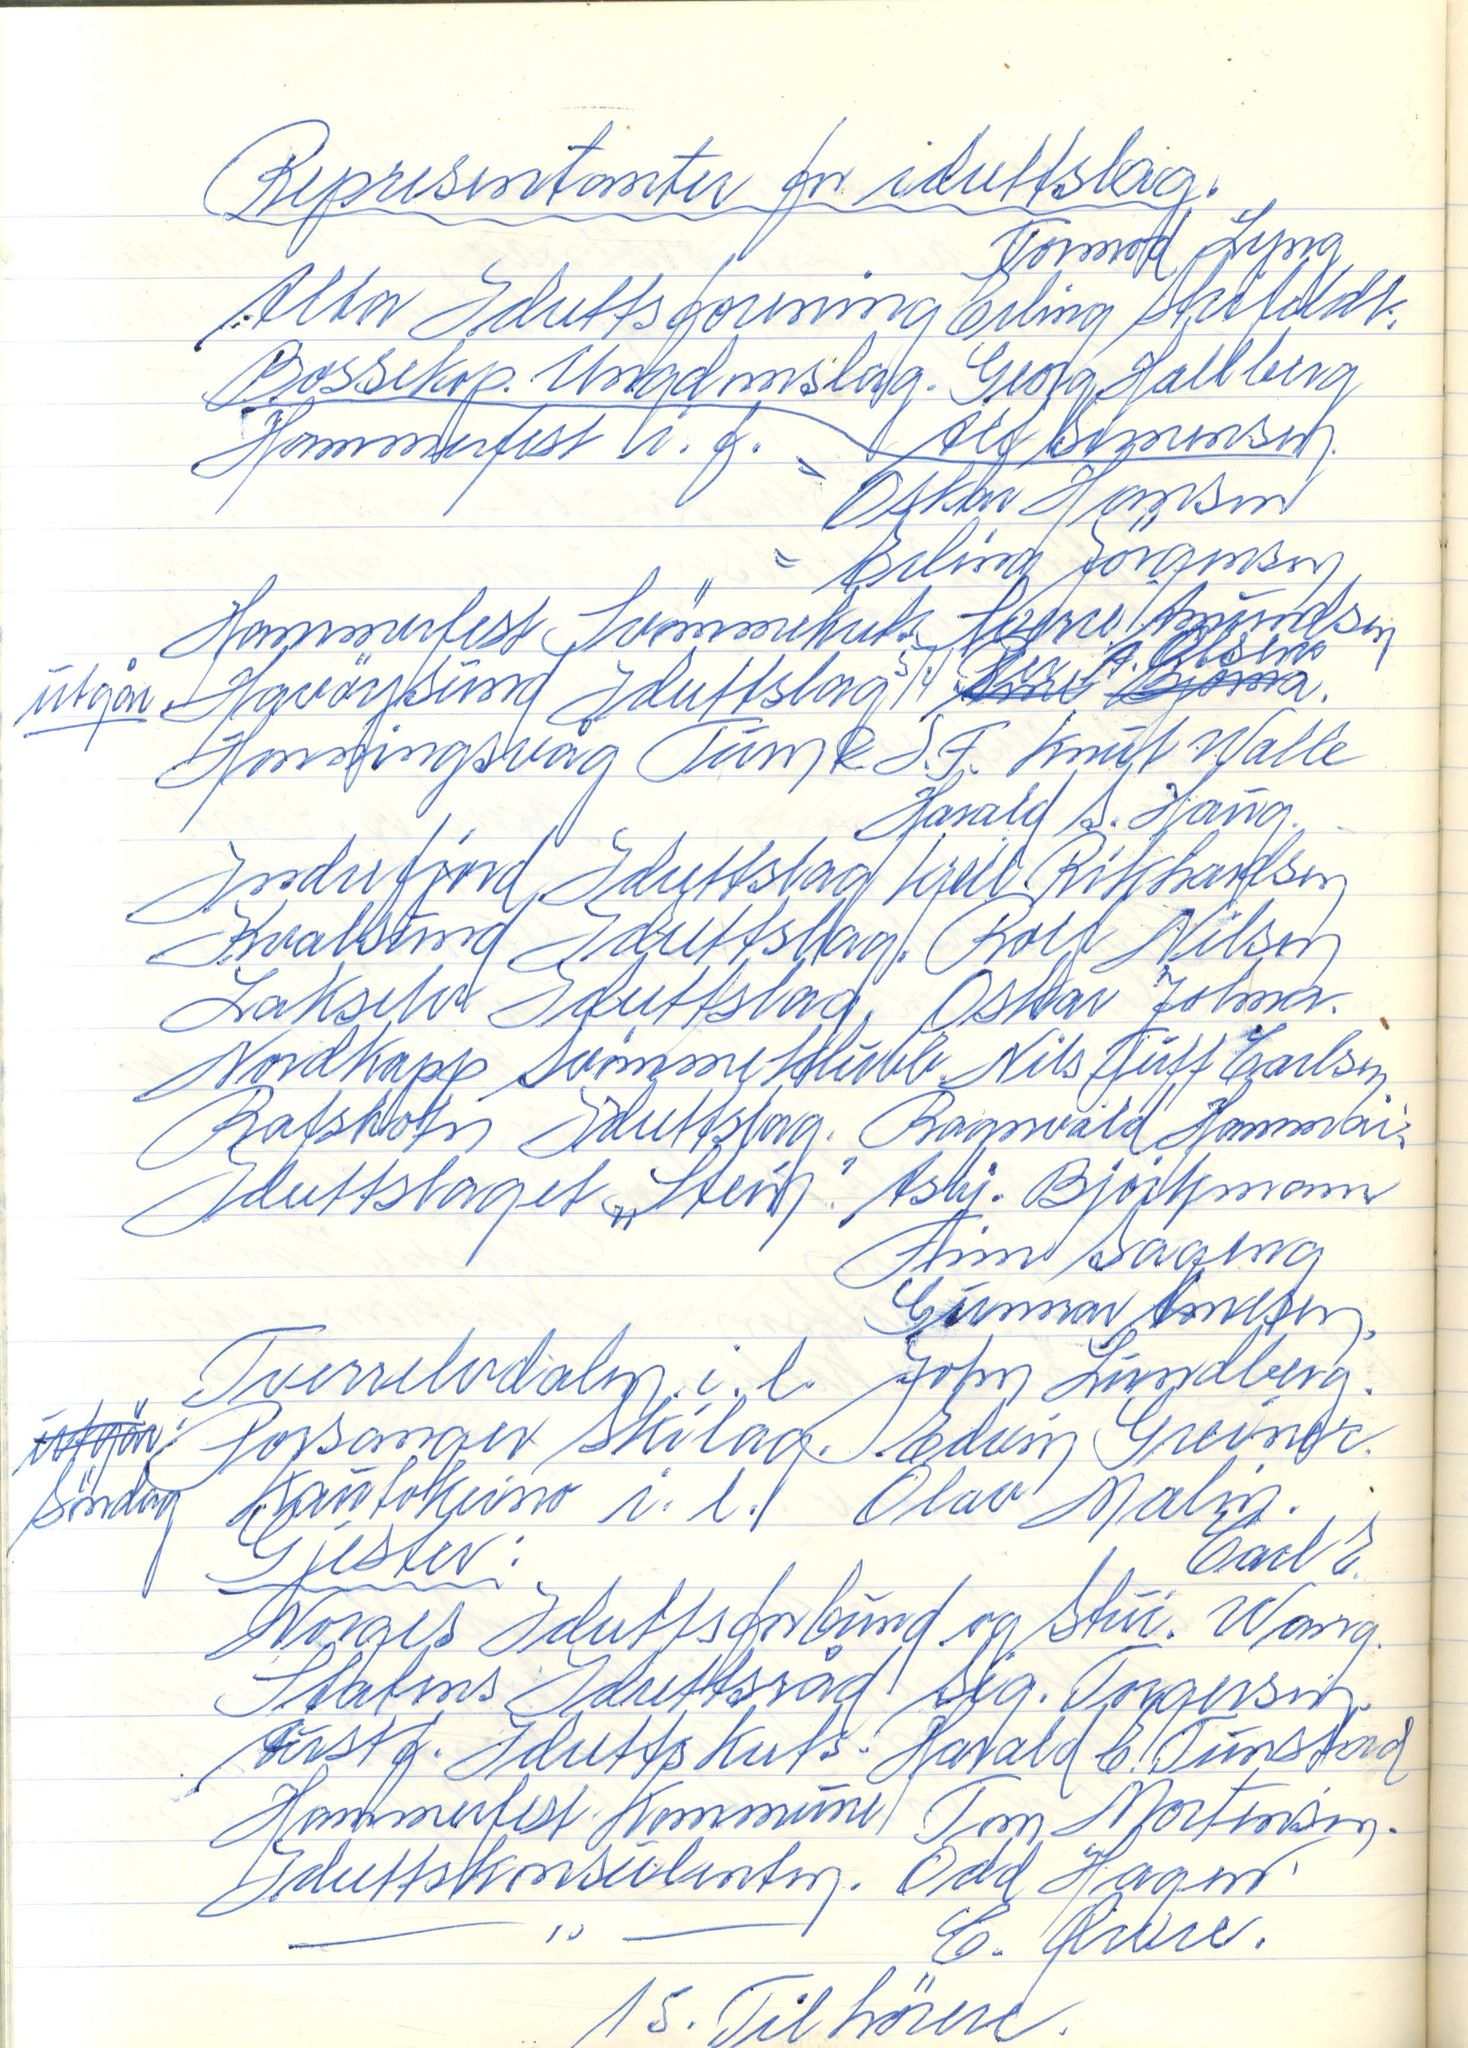 Representanter for idrettslag.
Tormod Lyng
Alta Idrettsforening Erling
Bossekop Ungdomslag. Georg Hallberg
Hammerfest i. f. Alf Simensen.
" Oskar Hansen
" Erling Jörgensen
Hammerfest Svömmeklub. Sverre Amundsen
utgår Havöysund Idrettslag
Honningsvåg Turn & I.F. Knut Walle
Harald S. Haug.
Indrefjord Idrettslag Kjell Rikhardsen
Kvalsund Idrettslag. Rolf Nilsen
Lakselv Idrettslag. Oskar Johma.
Nordkapp Svömmeklubb. Nils Tuff Carlsen
Rafsbotn Idrettslag. Ragnvald Hammari
Idrettslaget „Stein". Asbj. Björkmann
Finn Sagen
Gunnar Knutsen.
Tverrelvdalen i. l. John Lundberg.
utgår: Porsanger Skilag. Edvin Greiner.
Söndag Kautokeino i. l. Olav Malin.
Gjester: Carl E.
Norges Idrettsforbund og Stui. Wang.
Statens Idrettsråd Sig. Torgersen.
Aust f. Idrettskrets. Harald C. Tunstad
Hammerfest Kommune Tom Mortensen.
Idrettskonsulenten. Odd Hagen.
— " — E. Grere.
15. Tilhörere.